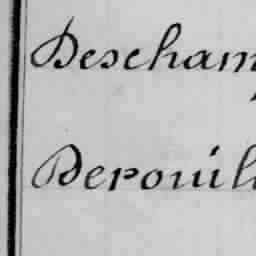 Descham
Derouil